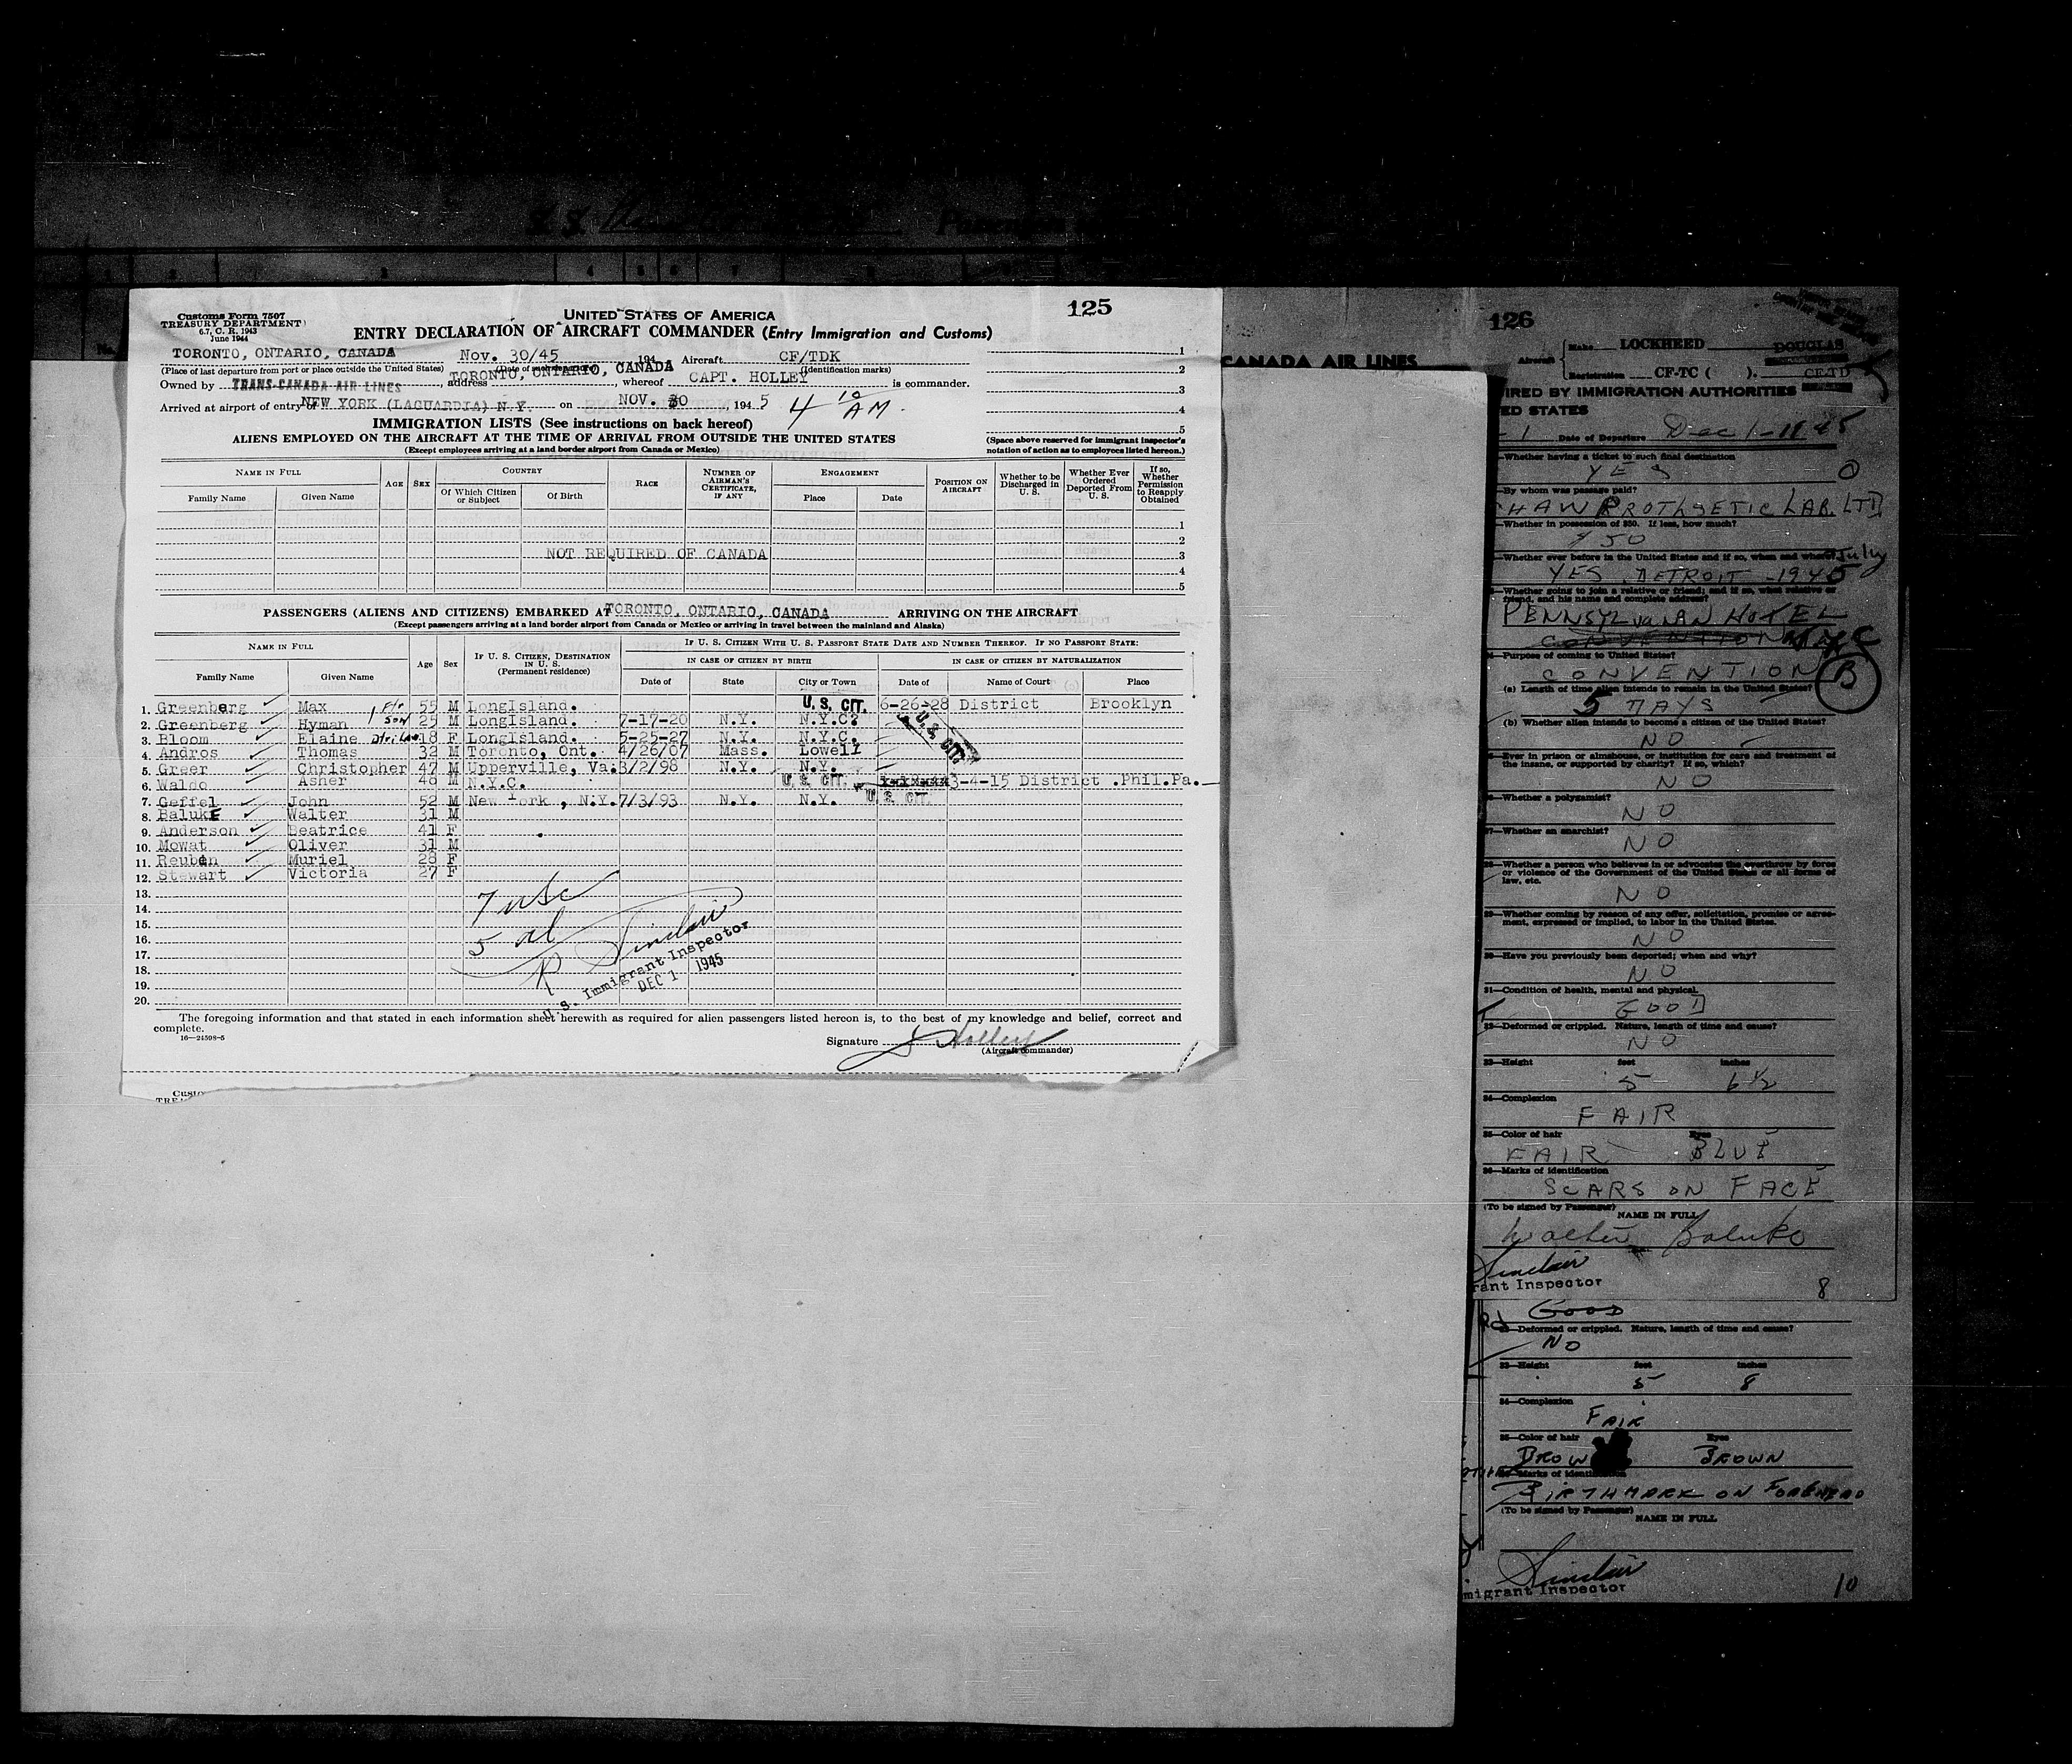 125
Customs Form 7507
TREASURY DEPARTMENT
6.7, C. R. 1943
June 1944
UNITED STATES OF AMERICA
ENTRY DECLARATION OF AIRCRAFT COMMANDER (Entry Immigration and Customs)
TORONTO, ONTARIO, CANADA Nov. 30/45 , 194 Aircraft CF/TDK 1
(Place of last departure from port or place outside the United States) (Date of such departure) (Identification marks)
Owned by TRANS-CANADA AIR LINES , address TORONTO, ONTARIO, CANADA , whereof CAPT. HOLLEY is commander. 2
3
Arrived at airport of entry of NEW YORK (LAGUARDIA) N.Y. on NOV. 30 , 194 5 4 10 AM. 4
5
IMMIGRATION LISTS (See instructions on back hereof)
ALIENS EMPLOYED ON THE AIRCRAFT AT THE TIME OF ARRIVAL FROM OUTSIDE THE UNITED STATES
(Except employees arriving at a land border airport from Canada or Mexico)
(Space above reserved for immigrant inspector's
notation of action as to employees listed hereon.)
NAME IN FULL AGE SEX COUNTRY RACE NUMBER OF AIRMAN'S CERTIFICATE, IF ANY ENGAGEMENT POSITION ON AIRCRAFT Whether to be Discharged in U. S. Whether Ever Ordered Deported From U. S. If so, Whether Permission to Reapply Obtained
Family Name Given Name Of Which Citizen or Subject Of Birth Place Date
1
2
NOT REQUIRED OF CANADA 3
4
5
PASSENGERS (ALIENS AND CITIZENS) EMBARKED AT TORONTO, ONTARIO, CANADA ARRIVING ON THE AIRCRAFT
(Except passengers arriving at a land border airport from Canada or Mexico or arriving in travel between the mainland and Alaska)
NAME IN FULL Age Sex IF U. S. CITIZEN, DESTINATION IN U. S. (Permanent residence) IF U. S. CITIZEN WITH U. S. PASSPORT STATE DATE AND NUMBER THEREOF. IF NO PASSPORT STATE:
IN CASE OF CITIZEN BY BIRTH IN CASE OF CITIZEN BY NATURALIZATION
Family Name Given Name Date of State City or Town Date of Name of Court Place
1. Greenberg Max 55 M LongIsland. U.S. CIT. 6-26-28 District Brooklyn
2. Greenberg Hyman son 25 M LongIsland. 7-17-20 N.Y. N.Y.C.
3. Bloom Elaine 18 F LongIsland. 5-25-27 N.Y. N.Y.C. U.S. CIT.
4. Andros Thomas 32 M Toronto, Ont. 4/26/07 Mass. Lowell
5. Greer Christopher 47 M Upperville, Va. 3/2/98 N.Y. N.Y.
6. Waldo Asher 48 M N.Y.C. U.S. CIT. 3-4-15 District .Phil.Pa.
7. Geffel John 52 M New York , N.Y. 7/3/93 N.Y. N.Y. U.S. CIT.
8. BalukE Walter 31 M
9. Anderson Beatrice 41 F
10. Mowat Oliver 31 M
11. Reuben Muriel 28 F
12. Stewart Victoria 27 F
13.
14.
15.
16.
17.
18.
19.
20.
7 usc
5 al
R Sinclair
U.S. Immigrant Inspector
DEC 1 1945
The foregoing information and that stated in each information sheet herewith as required for alien passengers listed hereon is, to the best of my knowledge and belief, correct and
complete.
16—24598-5
Signature Holley
(Aircraft commander)
126
CANADA AIR LINES
Aircraft Make LOCKHEED DOUGLAS
Registration CF-TC ( ). CF-TD
IRED BY IMMIGRATION AUTHORITIES
ED STATES
- 1 Date of Departure Dec 1-1945
Whether having a ticket to such final destination
YES
By whom was passage paid?
HAW PROTHSETIC LAB. LTD
Whether in possession of $50. If less, how much?
$50
Whether ever before in the United States and if so, when and where? July
YES DETROIT - 1945
Whether going to join a relative or friend; and if so, what relative or
friend, and his name and complete address?
PENNSYLVANIAN HOTEL
CONVENTION NYC
Purpose of coming to United States?
CONVENTION B
(a) Length of time alien intends to remain in the United States?
5 DAYS
(b) Whether alien intends to become a citizen of the United States?
NO
Ever in prison or almshouse, or institution for care and treatment of
the insane, or supported by charity? If so, which?
NO
Whether a polygamist?
NO
27—Whether an anarchist?
NO
28—Whether a person who believes in or advocates the overthrow by force
or violence of the Government of the United States or all forms of
law, etc.
NO
29—Whether coming by reason of any offer, solicitation, promise or agree-
ment, expressed or implied, to labor in the United States.
NO
30—Have you previously been deported; when and why?
NO
31—Condition of health, mental and physical.
GOOD
32—Deformed or crippled. Nature, length of time and cause?
NO
33—Height feet inches
5 6 1/2
34—Complexion
FAIR
35—Color of hair Eyes
FAIR BLUE
36—Marks of identification
SCARS ON FACE
(To be signed by Passenger)
NAME IN FULL
Walter Baluke
Sinclair
rant Inspector 8
GOOD
Deformed or crippled. Nature, length of time and cause?
NO
33—Height feet inches
5 8
34—Complexion
FAIR
35—Color of hair Eyes
BROW BROWN
Marks of identification
BIRTHMARK ON FOREHEAD
(To be signed by Passenger)
NAME IN FULL
Sinclair
migrant Inspector 10